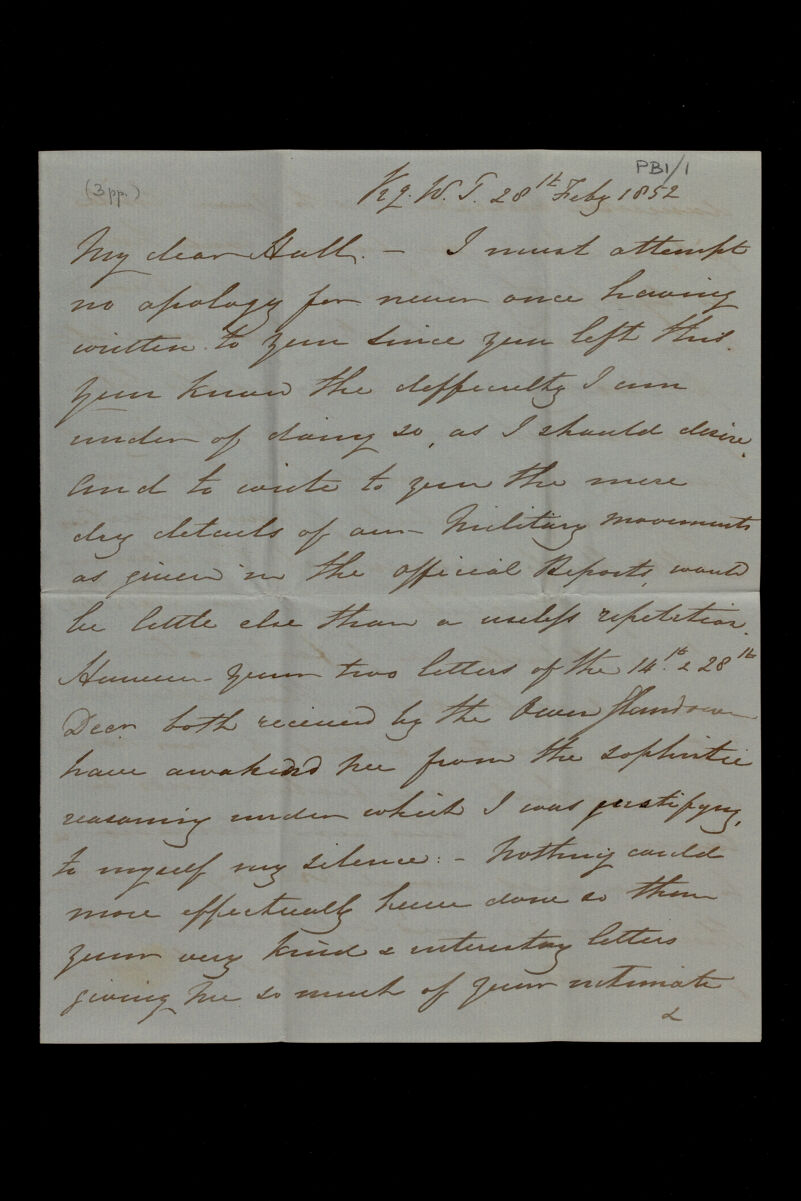 PB1/1
(3 pp.)
K.g. W. T. 28th Feby 1852
My dear Hall. – I must attempt
no apology for never once having
written to you since you left this.
You know the difficulty I am
under of doing so, as I should desire,
and to write to you the mere
dry details of our Military movements
as given in the official Reports, would
be little else than a useless repetition.
However your two letters of the 14th & 28th
Decr both received by the Owen Glendower
have awakened me from the sophistic
reasoning under which I was justifying,
to myself my silence: – Nothing could
more effectually have done so than
your very kind & interesting letters
giving me so much of your intimate
&